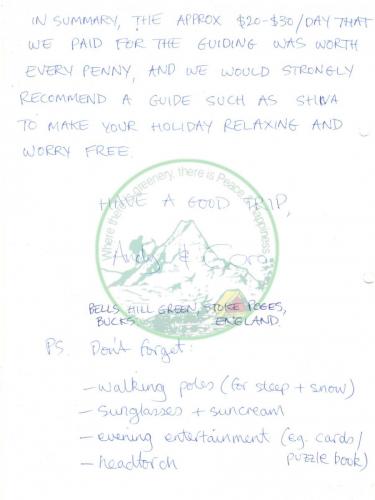 IN SUMMARY, THE APPROX $20-$30/DAY THAT
WE PAID FOR THE GUIDING WAS WORTH
EVERY PENNY, AND WE WOULD STRONGLY
RECOMMEND A GUIDE SUCH AS SHIVA
TO MAKE YOUR HOLIDAY RELAXING AND
WORRY FREE.
Where there is greenery, there is Peace & Happiness
HAVE A GOOD TRIP,
Andy &
BELLS HILL GREEN, STOKE POGES,
BUCKS. ENGLAND.
PS. Don't forget:
- walking poles (for sleep + snow)
- sunglasses + suncream
- evening entertainment (eg. cards/
puzzle book)
- headtorch